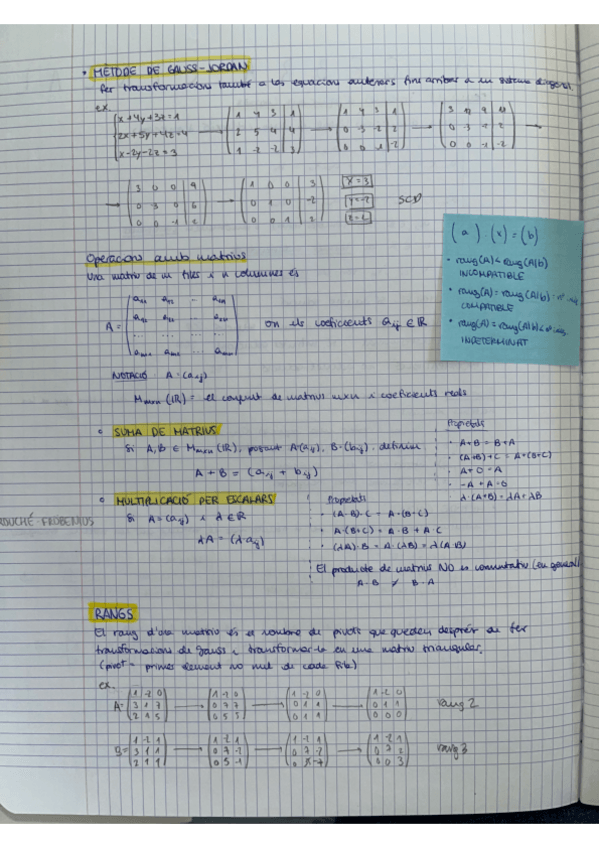 • MÈTODE DE GAUSS-JORDAN
Per transformacions també a les equacions anteriors fins arribar a un sistema diagonal.
ex.
{x+4y+3z=1
{2x+5y+4z=4
{x-2y-2z=3
→ (1 4 3 | 1
2 5 4 | 4
1 -2 -2 | 3)
→ (1 4 3 | 1
0 -3 -2 | 2
0 0 1 | -2)
→
→ (3 0 0 | 9
0 3 0 | 6
→ (1 0 0 | 3
0 1 0 | -2
0 0 1 | 2)
X=3
Y=-2
SCD
(a) · (x) = (b)
• rang(A) < rang(A|b)
INCOMPATIBLE
• rang(A) = rang(A|b) = nº inc.
COMPATIBLE
• rang(A) = rang(A|b) < nº inc.
INDETERMINAT
Operacions amb matrius
Una matriu de m files i n columnes és
A =
on els coeficients aij ∈ ℝ
NOTACIÓ: A = (aij)
Mmxn (ℝ) = el conjunt de matrius mxn i coeficients reals
• SUMA DE MATRIUS
Si A, B ∈ Mmxn (ℝ), posant A=(aij), B=(bij), definim
A + B = (aij + bij)
Propietats
• A+B = B+A
• (A+B)+C = A+(B+C)
• A+0 = A
• -A + A = 0
• λ·(A+B) = λA + λB
• MULTIPLICACIÓ PER ESCALARS
Si A = (aij) i λ ∈ ℝ
λA = (λ·aij)
Propietats
• (A·B)·C = A·(B·C)
• A·(B+C) = A·B + A·C
• (λA)·B = A·(λB) = λ(A·B)
El producte de matrius NO és commutatiu (en general)
A·B ≠ B·A
ROUCHÉ-FROBENIUS
RANGS
El rang d'una matriu és el nombre de pivots que queden després de fer
transformacions de gauss i transformar-la en una matriu triangular.
(pivot = primer element no nul de cada fila)
ex.
A= (1 -2 0
3 1 7
2 1 5)
→ (1 -2 0
0 7 7
0 5 5)
→ (1 -2 0
0 1 1
0 1 1)
→ (1 -2 0
0 1 1
0 0 0)
rang 2
B= (1 -2 1
3 1 1
2 1 1)
→ (1 -2 1
0 7 -2
0 5 -1)
→ (1 -2 1
0 7 -2
→ (1 -2 1
0 7 2
0 0 3)
rang 3